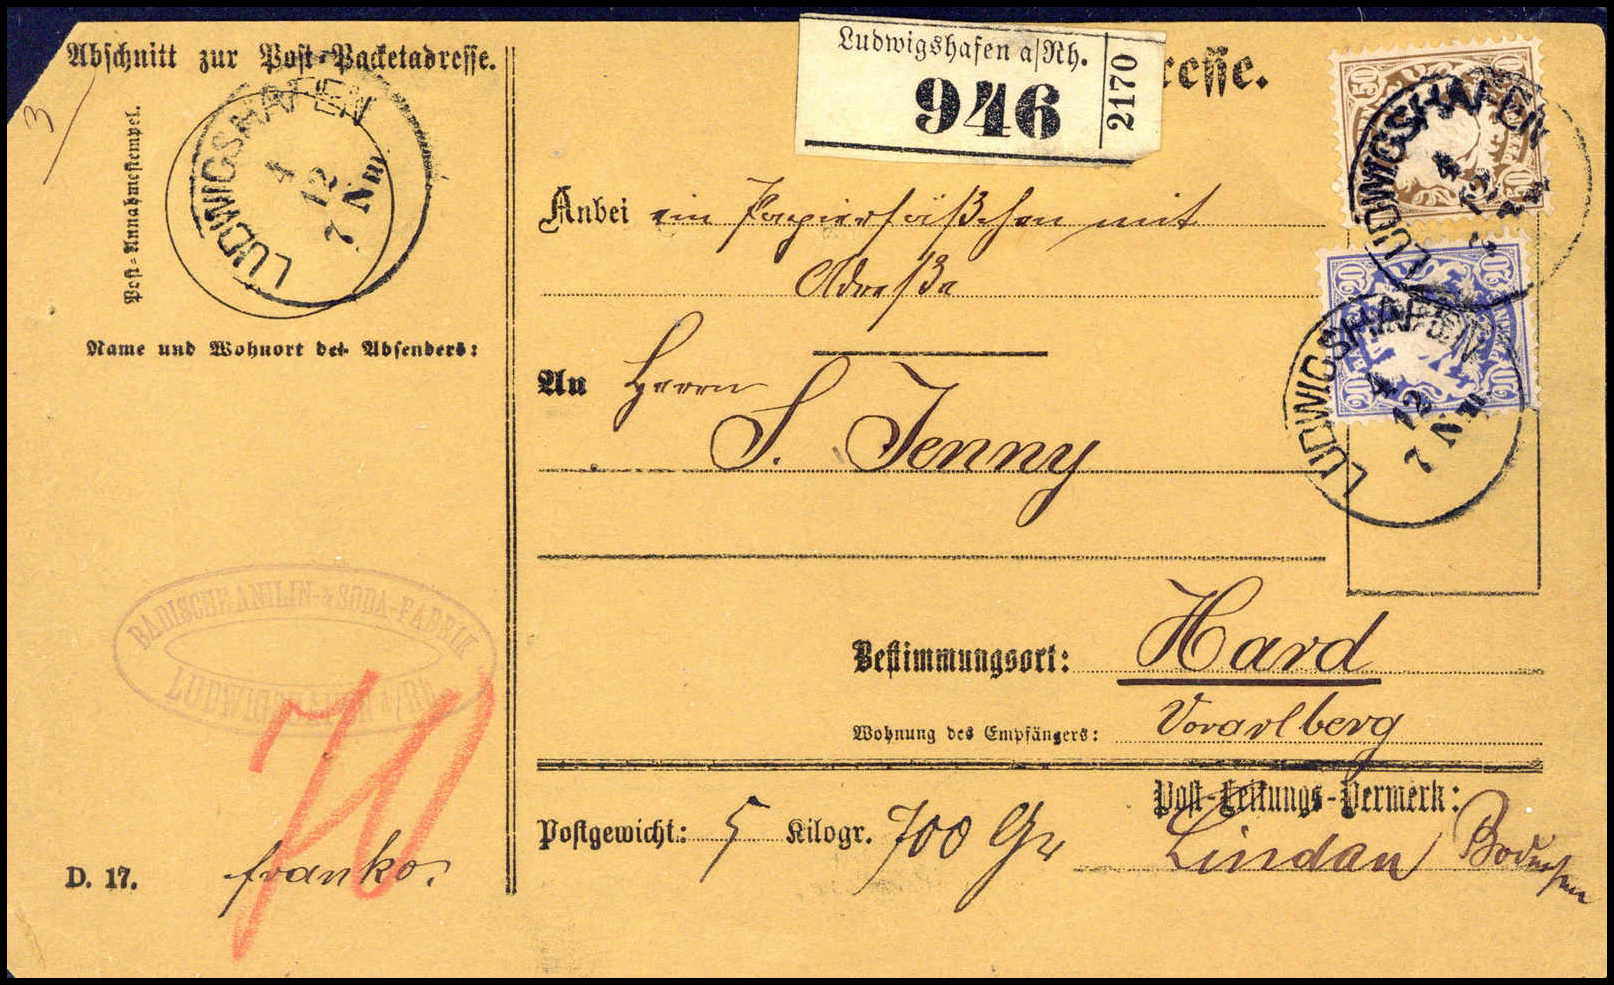 Abschnitt zur Post-Packetadresse.
3
Post-Annahmestempel.
LUDWIGSHAFEN
4
12
7 Nm
Name und Wohnort des Absenders:
BADISCHE ANILIN- & SODA-FABRIK
LUDWIGSHAFEN a/Rh.
70
franko.
D. 17.
Ludwigshafen a/Rh.
946
2170
resse.
Anbei ein Papierfäßchen mit
Adreße
An Herrn
S. Jenny
Bestimmungsort: Hard
Wohnung des Empfängers: Vorarlberg
Postgewicht: 5 Kilogr. 700 Gr
Post-Leitungs-Vermerk:
Lindau
50 50
PFENNIG
50
LUDWIGSHAFEN
4
12
7
20 20
20 20
LUDWIGSHAFEN
4
12
7 Nm